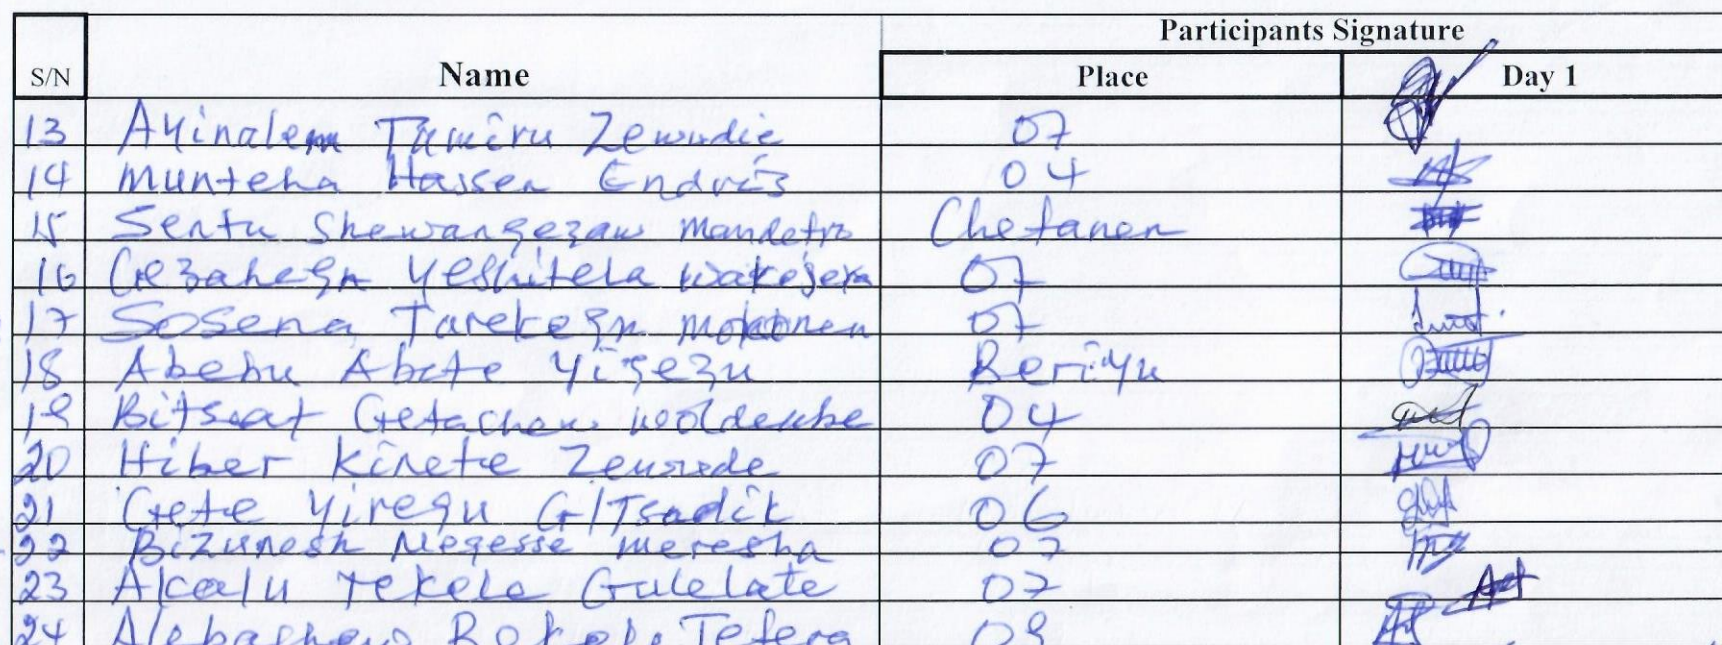 Participants Signature
S/N Name Place Day 1
13 Ayinalem Tamiru Zewudie 07
14 Munteha Hassen Endris 04
15 Sentu Shewangezaw Mandefro Chefanen
16 Gezahegn Yeshitela Wakejera 07
17 Sosena Tarekegn Mokonnen 07
18 Abebu Abate Yigezu Beriyu
19 Bitseat Getachew Woldeube 04
20 Hiber Kinete Zewude 07
21 Gete Yiregu G/Tsadik 06
22 Bizunesh Negesse Meresha 07
23 Akalu Tekele Gulelate 07
24 Alebachew Bekele Tefera